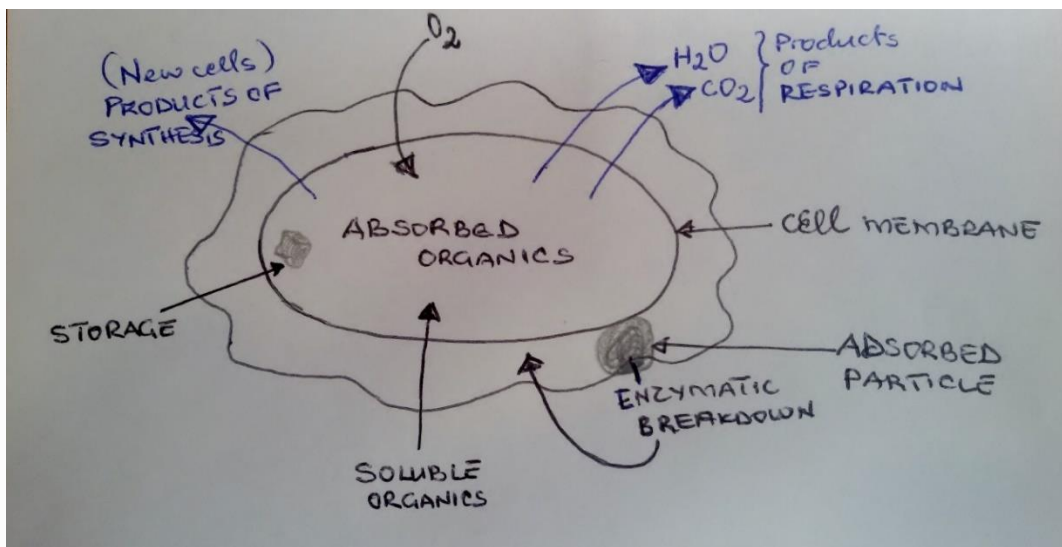 O2
(New cells)
PRODUCTS OF
SYNTHESIS
H2O
CO2
Products
OF
RESPIRATION
ABSORBED
ORGANICS
CELL MEMBRANE
STORAGE
ADSORBED
PARTICLE
ENZYMATIC
BREAKDOWN
SOLUBLE
ORGANICS